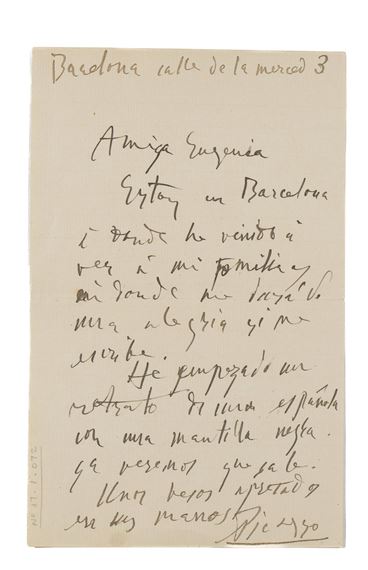 Barcelona calle de la merced 3
Amiga Eugenia
Estoy en Barcelona
i donde he venido á
ver á mi familia y
en donde me dará Vd
una alegria si me
escribe.
He empezado un
retrato de una española
con una mantilla negra.
ya veremos que sale.
Unos besos apretados
en sus manos
Picasso